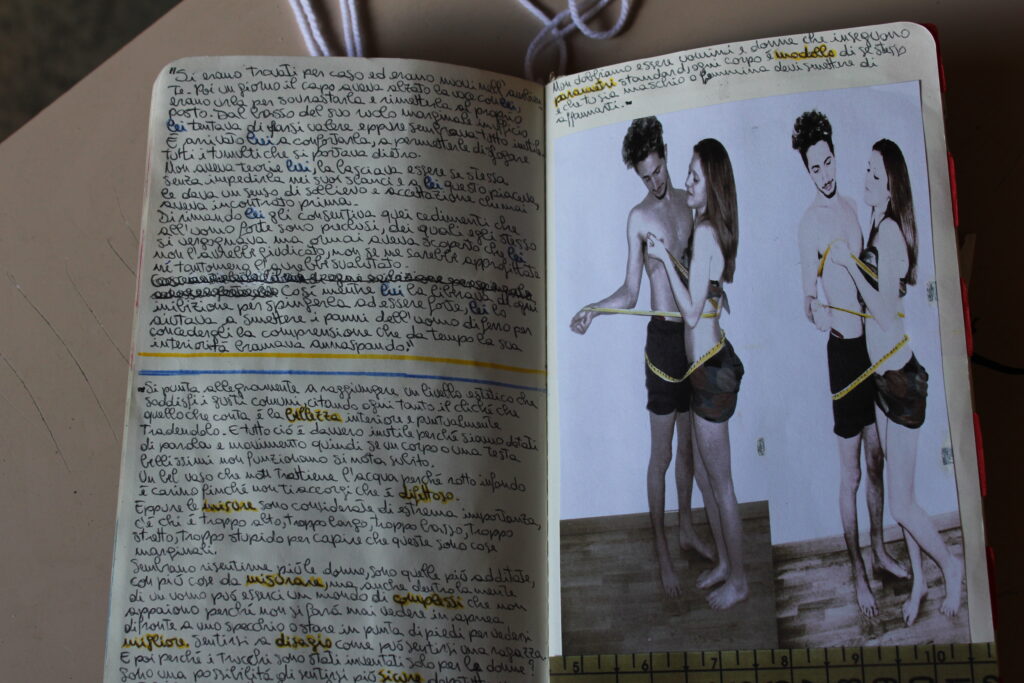 "Si erano trovati per caso ed erano mutati nell'
Te. Poi un giorno il capo aveva alzato la voce con lei,
erano urla per sovrastarla e rimetterla al proprio
posto. Dal basso del suo ruolo marginale in ufficio
lei tentava di farsi valere eppure sembrava tutto inutile.
È arrivato lui a confortarla, a permetterle di sfogare
tutti i tumulti che si portava dietro.
Non aveva teorie lui, la lasciava essere se stessa
senza impedirla nei suoi slanci e a lei questo piaceva,
le dava un senso di sollievo e accettazione che mai
aveva incontrato prima.
Di rimando lei gli consentiva quei cedimenti che
all'uomo forte sono preclusi, dei quali egli stesso
si vergognava ma ormai aveva scoperto che lei
non l'avrebbe giudicato, non se ne sarebbe approfittata
né tantomeno l'avrebbe svalutato.
Così mentre lui la liberava di ogni
inibizione per spingerla ad essere forte, lei lo
aiutava a smettere i panni dell'uomo di ferro per
concedergli la comprensione che da tempo la sua
interiorità bramava annaspando."
"Si punta allegramente a raggiungere un livello estetico che
soddisfi i gusti comuni, citando ogni tanto il cliché che
quello che conta è la bellezza interiore e puntualmente
tradendolo. E tutto ciò è davvero inutile perché siamo dotati
di parola e movimento quindi se un corpo o una testa
bellissimi non funzionano si nota subito.
Un bel vaso che non trattiene l'acqua perché rotto in fondo
è carino finché non ti accorgi che è difettoso.
Eppure le misure sono considerate di estrema importanza,
c'è chi è troppo alto, troppo largo, troppo basso, troppo
stretto, troppo stupido per capire che queste sono cose
marginali.
Sembrano risentirne più le donne, sono quelle più additate,
con più cose da misurare, ma anche dentro la mente
di un uomo può esserci un mondo di complessi che non
appaiono perché non si farà mai vedere in apnea
di fronte a uno specchio o stare in punta di piedi per vedersi
migliore. Sentirsi a disagio come può sentirsi una ragazza.
E poi perché i trucchi sono stati inventati solo per le donne?
Sono una possibilità di sentirsi più sicure
Non dobbiamo essere uomini e donne che inseguono
parametri standard, ogni corpo è modello di se stesso
e che tu sia maschio o femmina devi smettere di
affannarti."
5 6 7 8 9 10